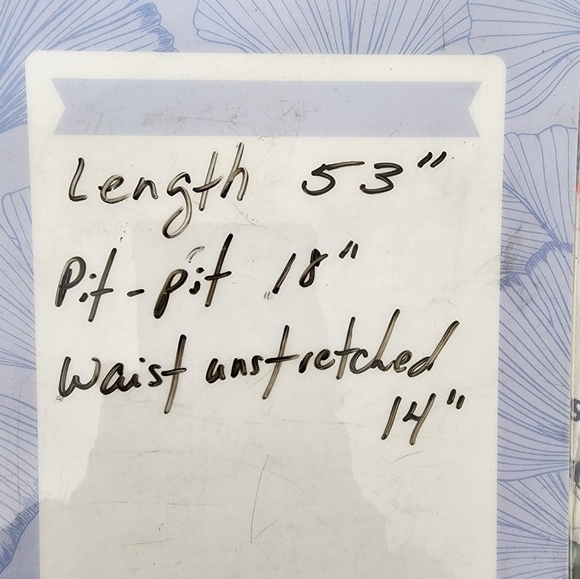 Length 53"
Pit-pit 18"
Waist unstretched
14"